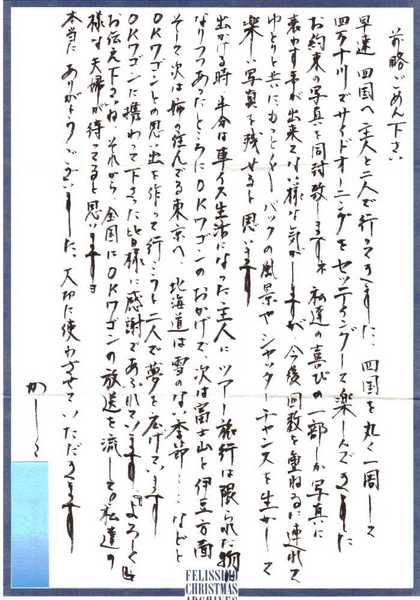 前略ごめん下さい
早速四国へ主人と二人で行ってきました。四国を丸く一周して
四万十川でサイドオーニングをセッティングして楽しんできました
お約束の写真を同封致します 私達の喜びの一部しか写真に
表わす事が出来ない様な気がしますが、今後回数を重ねるに連れて
ゆとりと共にもっともっとバックの風景やシャッターチャンスを生かして
楽しい写真を残せると思います
出かける時半分は車イス生活になった主人にツアー旅行は限られた物に
なりつつあったところにOKワゴンのおかげで、次は富士山と伊豆方面
そして次は姉の住んでる東京へ 北海道は雪のない季節……などと
OKワゴンとの思い出を作って行こうと二人で夢を広げています
OKワゴンに携わって下さった皆様に感謝であふれています よろしく
お伝え下さいね それから全国にOKワゴンの放送を流して私達の
様な夫婦が待ってると思いますョ
本当にありがとうございました。大切に使わさせていただきます
かしこ
FELISSIMO
CHRISTMAS
ARCHIVES